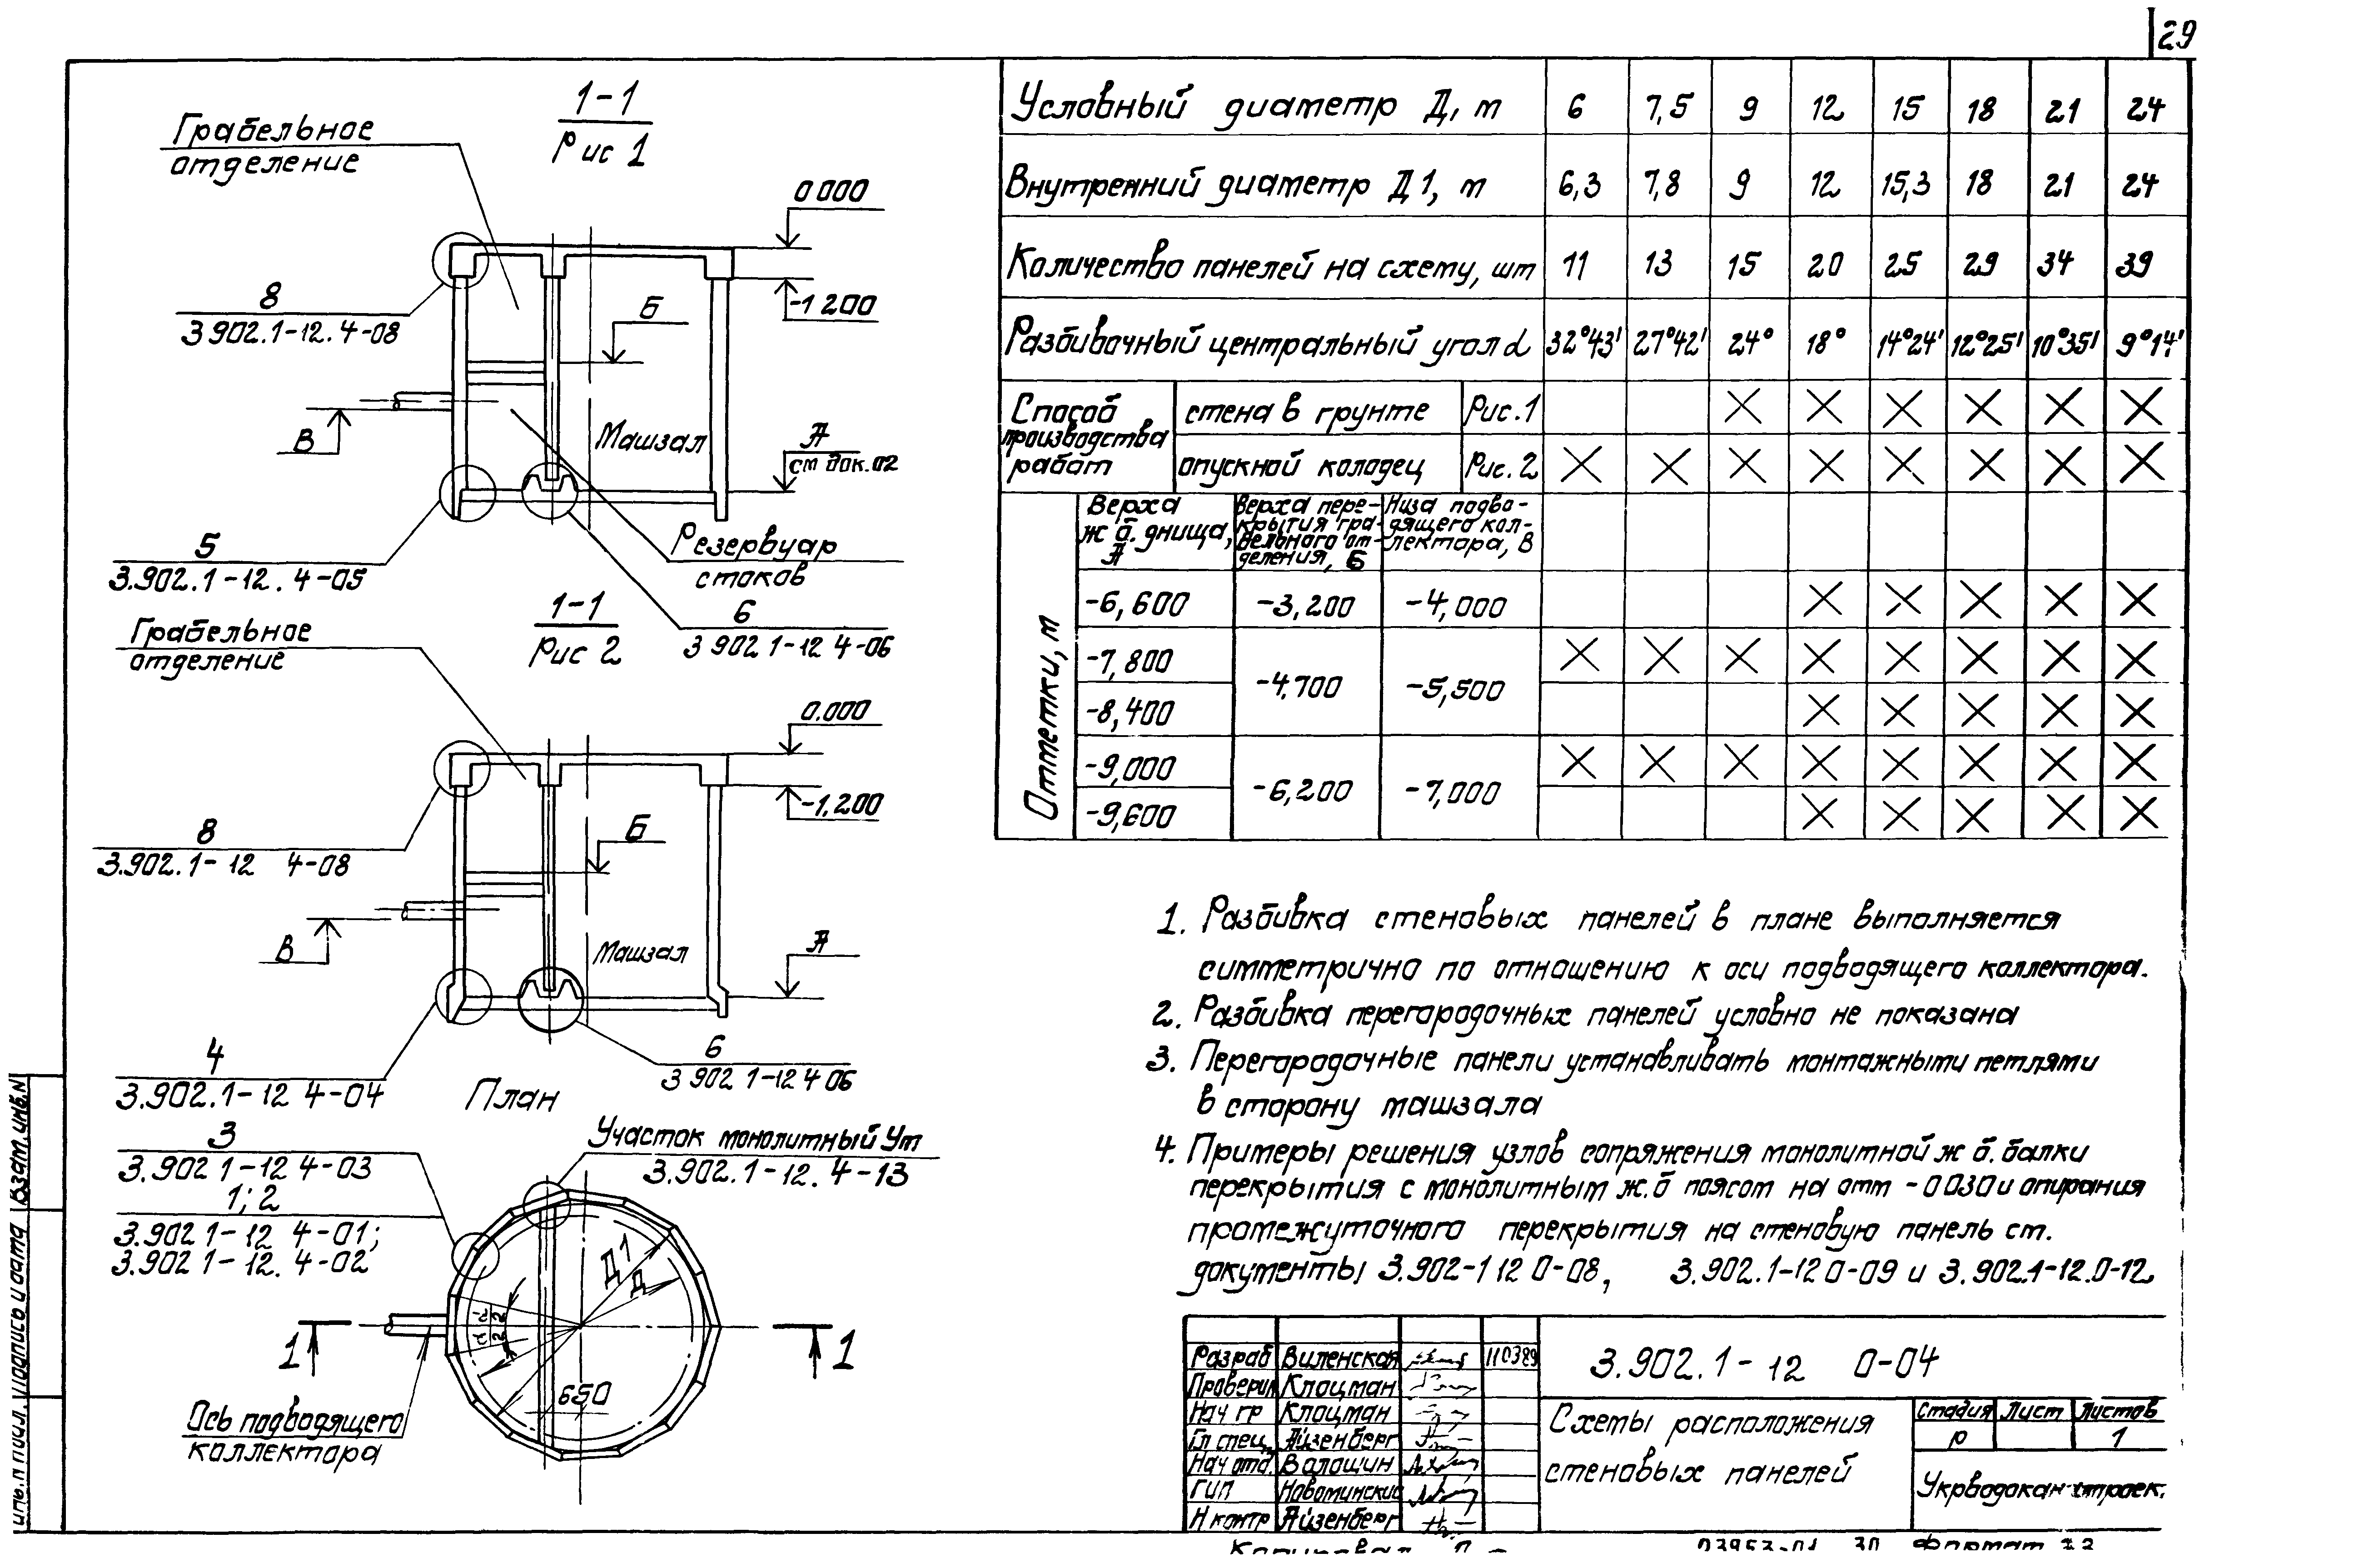 29
1-1
Рис 1
Грабельное
отделение
0 000
-1 200
8
3 902.1-12.4-08
Б
В
Машзал
А
см док.02
5
3.902.1-12.4-05
Резервуар
стоков
6
3 902 1-12 4-06
1-1
Рис 2
Грабельное
отделение
0.000
-1,200
8
3.902.1-12 4-08
Б
В
Машзал
А
4
3.902.1-12 4-04
6
3 902 1-12 4 06
План
3
3.902 1-12 4-03
1; 2
3.902 1-12 4-01;
3.902 1-12. 4-02
Участок монолитный Ум
3.902.1-12. 4-13
Д1
Д
α/2 α/2
650
1 1
Ось подводящего
коллектора
Условный диаметр Д, м 6 7,5 9 12 15 18 21 24
Внутренний диаметр Д1, м 6,3 7,8 9 12 15,3 18 21 24
Количество панелей на схему, шт 11 13 15 20 25 29 34 39
Разбивочный центральный угол α 32°43' 27°42' 24° 18° 14°24' 12°25' 10°35' 9°14'
Способ
производства
работ
стена в грунте Рис.1 X X X X X X
опускной колодец Рис.2 X X X X X X X X
Отметки, м
Верха
ж б. днища,
А
Верха пере-
крытия гра-
бельного от-
деления, Б
Низа подво-
дящего кол-
лектора, В
-6,600 -3,200 -4,000 X X X X X
-7,800 X X X X X X X X
-4,700 -5,500
-8,400 X X X X X
-9,000 X X X X X X X X
-6,200 -7,000
-9,600 X X X X X
1. Разбивка стеновых панелей в плане выполняется
симметрично по отношению к оси подводящего коллектора.
2. Разбивка перегородочных панелей условно не показана
3. Перегородочные панели устанавливать монтажными петлями
в сторону машзала
4. Примеры решения узлов сопряжения монолитной ж б. балки
перекрытия с монолитным ж.б поясом на отм -0 030 и опирания
промежуточного перекрытия на стеновую панель см.
документы 3.902-1 12 0-08, 3.902.1-12 0-09 и 3.902.1-12.0-12.
Разраб Виленская 110389
Проверил Клоцман
Нач гр Клоцман
Гл спец. Айзенберг
Нач отд. Волошин
ГИП Новоминский
Н контр Айзенберг
3.902.1-12 0-04
Схемы расположения
стеновых панелей
Стадия Лист Листов
Р 1
Укрводоканалпроек.
Взам.инв.N
Подпись и дата
Инв.N подл.
Копировал
03953-01 30 Формат А3